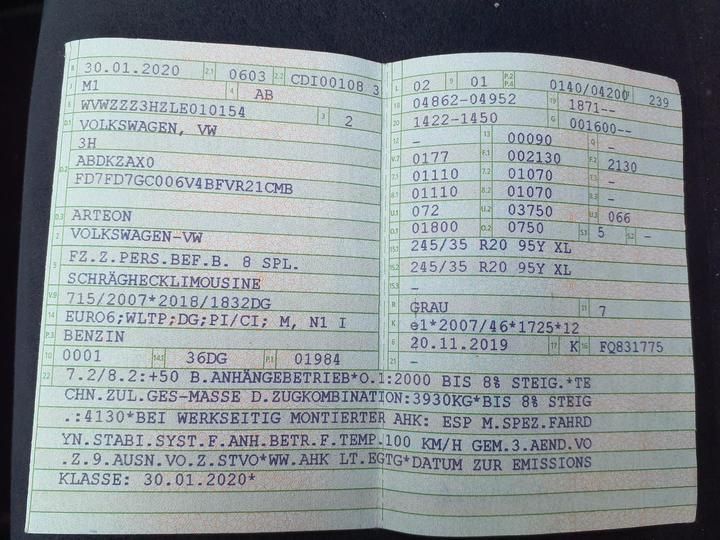 B 30.01.2020 2.1 0603 2.2 CDI00108 3
J M1 4 AB
E WVWZZZ3HZLE010154 3 2
D.1 VOLKSWAGEN, VW
3H
D.2 ABDKZAX0
FD7FD7GC006V4BFVR21CMB
D.3 ARTEON
2 VOLKSWAGEN-VW
5 FZ.Z.PERS.BEF.B. 8 SPL.
SCHRÄGHECKLIMOUSINE
V.9 715/2007*2018/1832DG
14 EURO6;WLTP;DG;PI/CI; M, N1 I
P.3 BENZIN
10 0001 14.1 36DG P.1 01984
L 02 9 01 P.2 P.4 0140/04200 239
18 04862-04952 19 1871--
20 1422-1450 G 001600--
12 - 13 00090 Q -
V.7 0177 F.1 002130 F.2 2130
7.1 01110 7.2 01070 7.3 -
8.1 01110 8.2 01070 8.3 -
U.1 072 U.2 03750 U.3 066
O.1 01800 O.2 0750 S.1 5 S.2 -
15.1 245/35 R20 95Y XL
15.2 245/35 R20 95Y XL
15.3 -
R GRAU 11 7
K e1*2007/46*1725*12
6 20.11.2019 17 K 16 FQ831775
21 -
22 7.2/8.2:+50 B.ANHÄNGEBETRIEB*O.1:2000 BIS 8% STEIG.*TE
CHN.ZUL.GES-MASSE D.ZUGKOMBINATION:3930KG*BIS 8% STEIG
.:4130*BEI WERKSEITIG MONTIERTER AHK: ESP M.SPEZ.FAHRD
YN.STABI.SYST.F.ANH.BETR.F.TEMP.100 KM/H GEM.3.AEND.VO
.Z.9.AUSN.VO.Z.STVO*WW.AHK LT.EGTG*DATUM ZUR EMISSIONS
KLASSE: 30.01.2020*